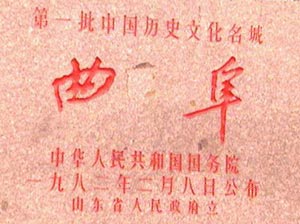 第一批中国历史文化名城
曲阜
中华人民共和国国务院
一九八二年二月八日公布
山东省人民政府立